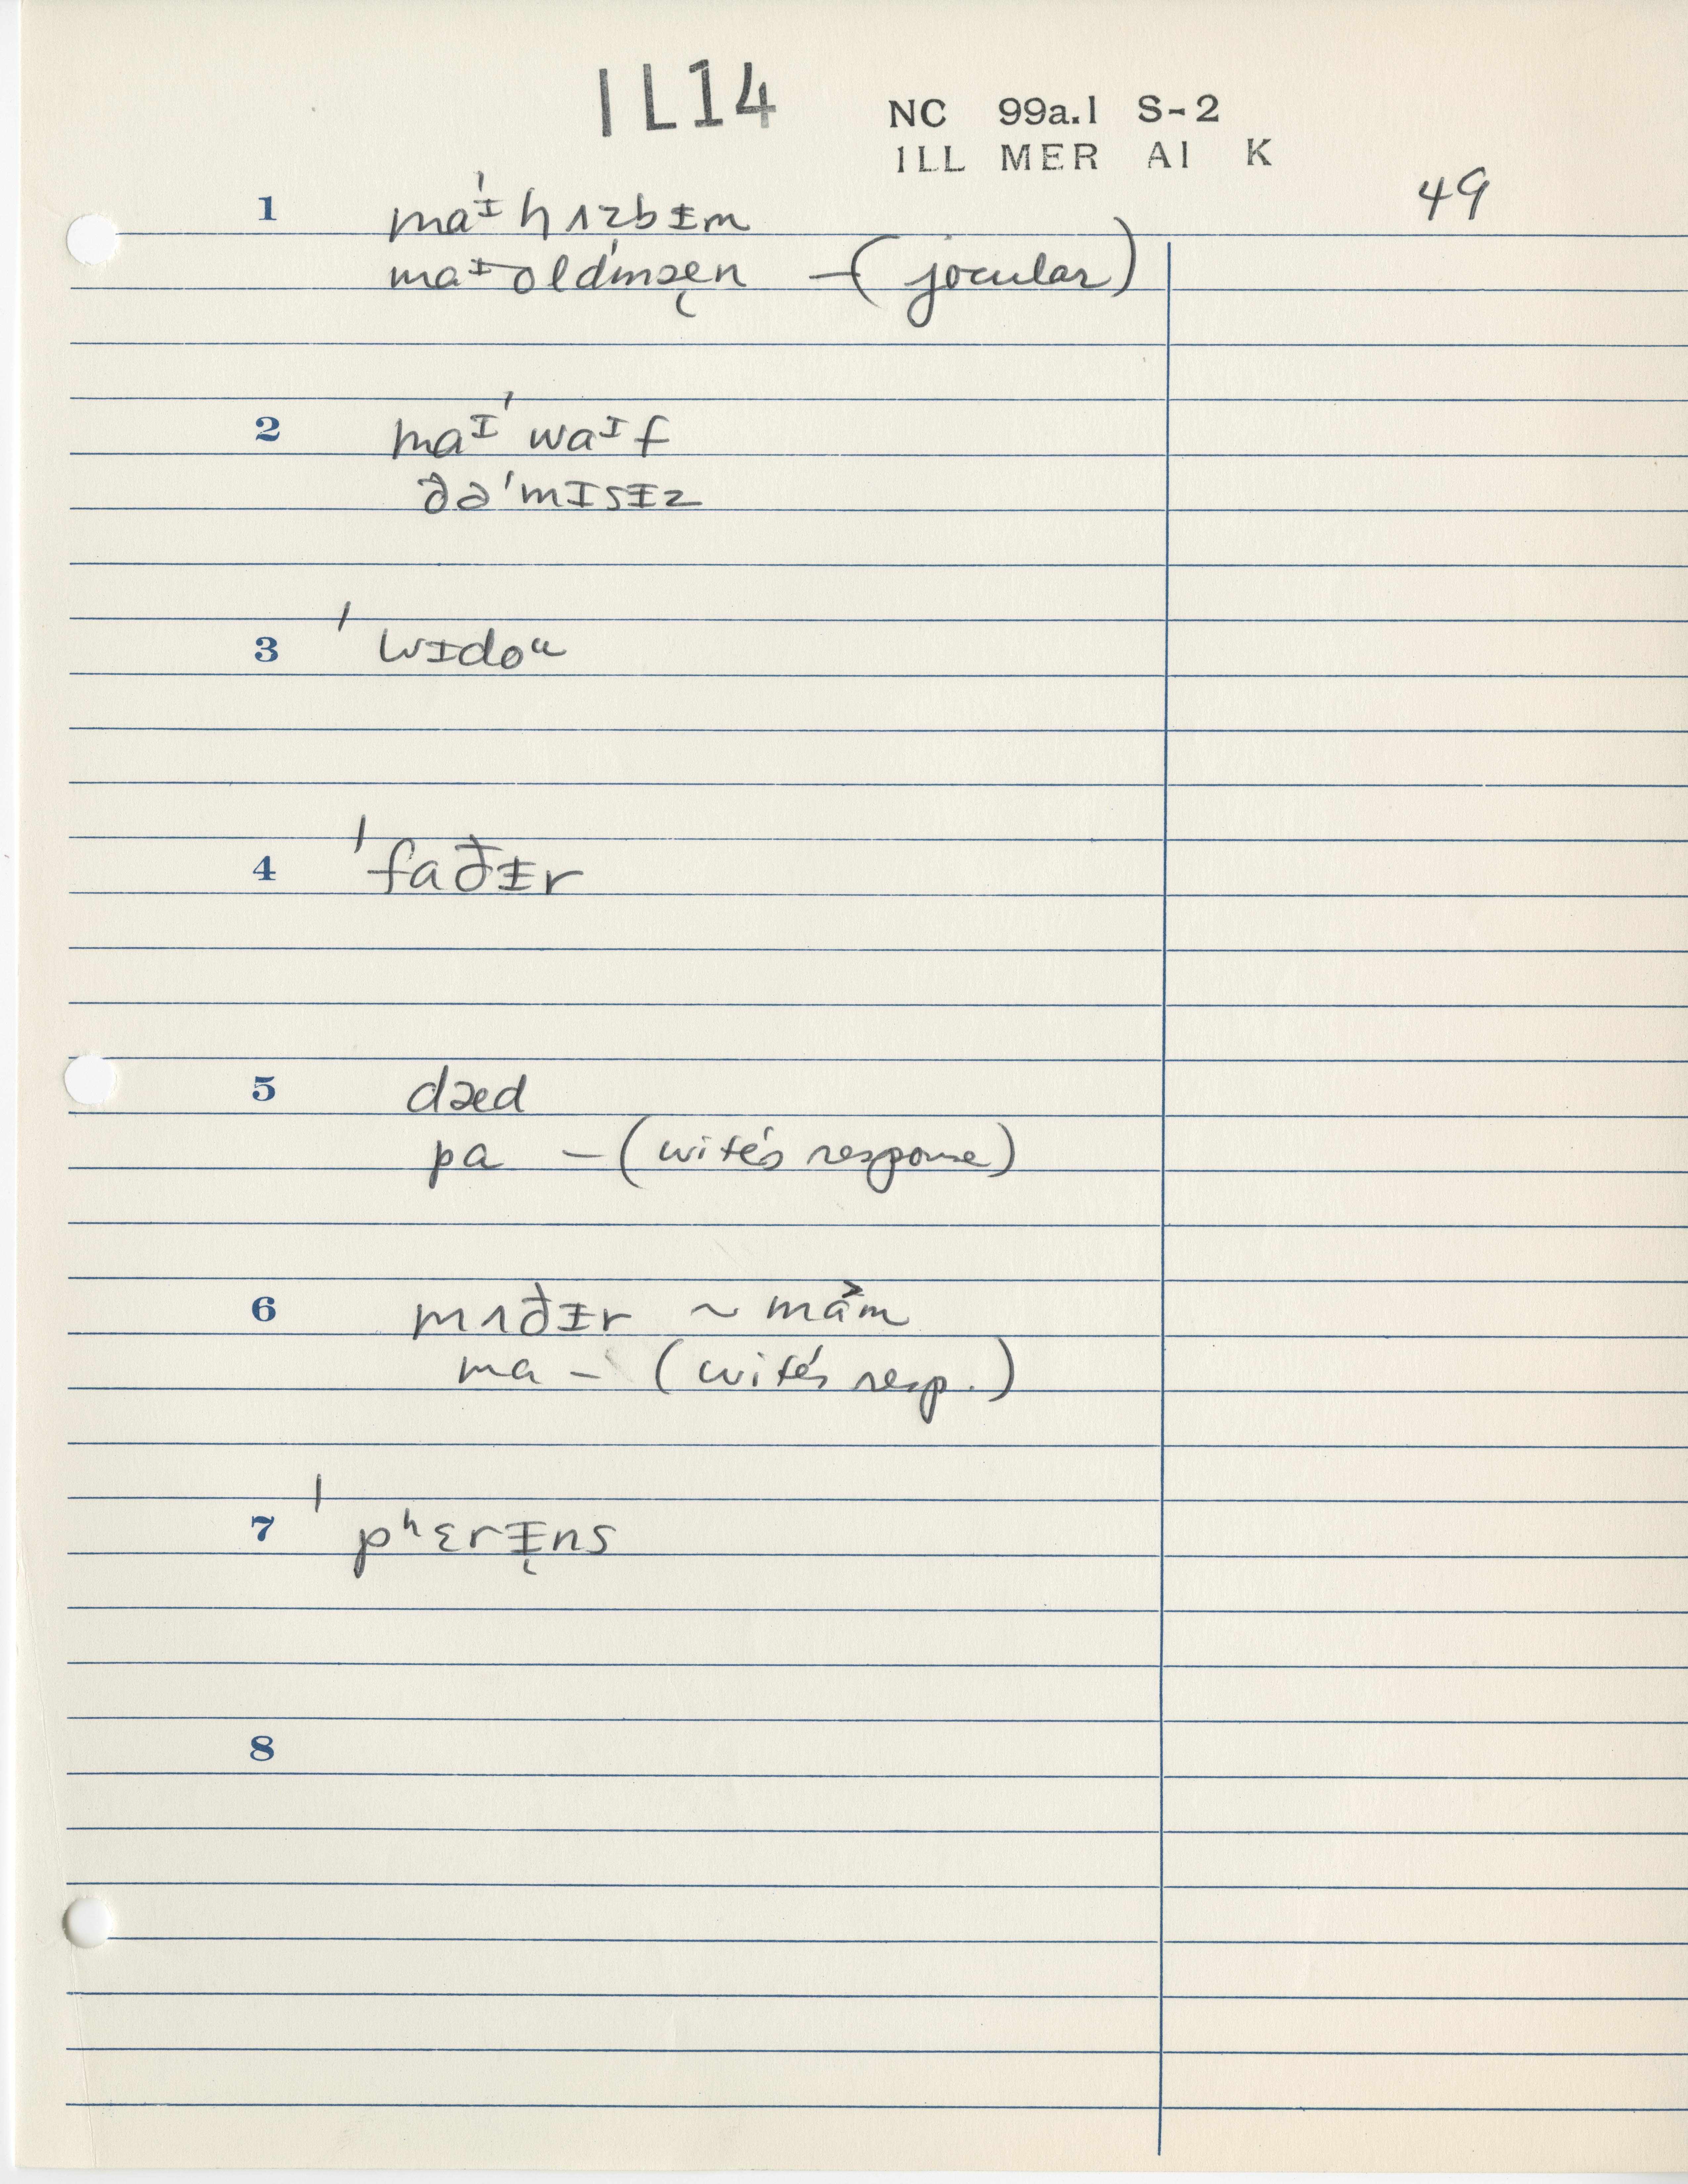 IL14
NC 99a.1 S-2
ILL MER A1 K
49
1 maᵻ'hʌzbᵻm
maᵻold'mæ̨n – (jocular)
2 maɪ'waɪf
ðə'mɪsᵻz
3 'wɪdoᵘ
4 'faðᵻr
5 dæd
pa – (wife's response)
6 mʌðᵻr ~ mɑ̃˃m
ma – (wife's resp.)
7 'pʰɛrᵻ̨ns
8